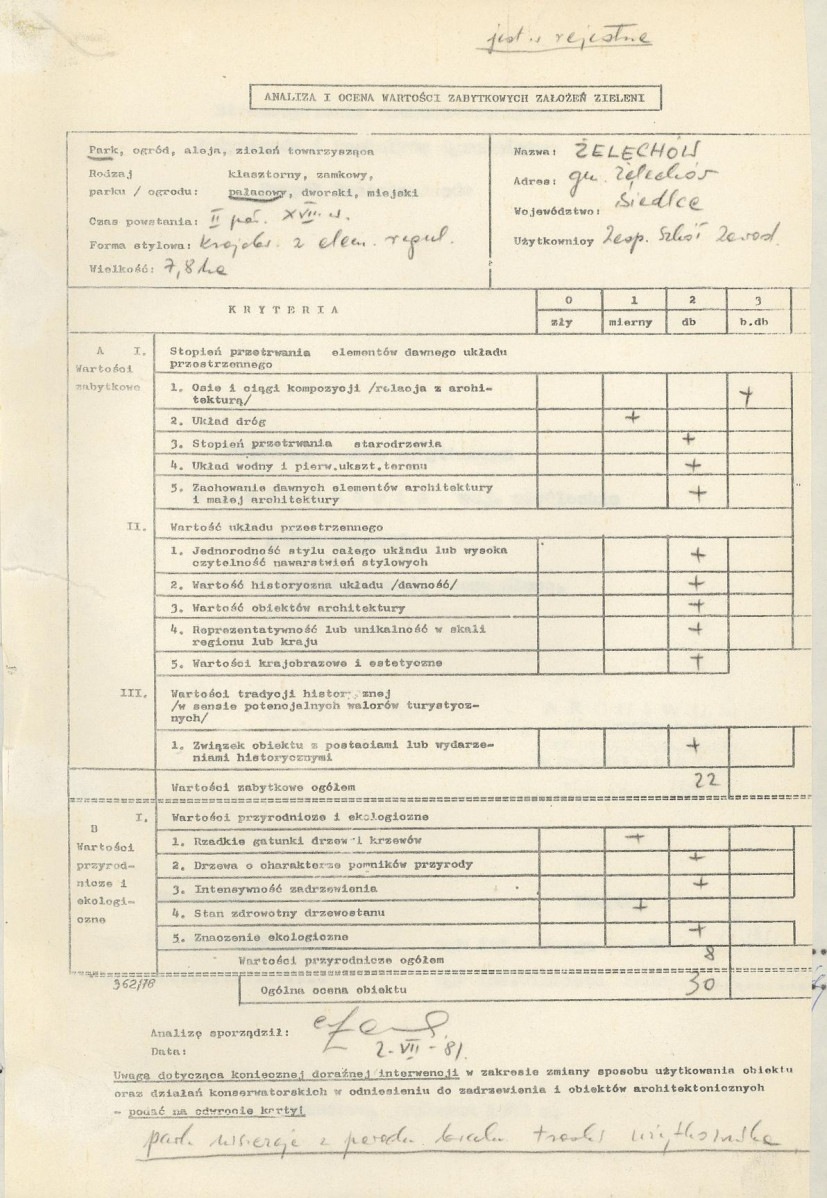 jest w rejestrze
ANALIZA I OCENA WARTOŚCI ZABYTKOWYCH ZAŁOŻEŃ ZIELENI
Park, ogród, aleja, zieleń towarzysząca
Rodzaj klasztorny, zamkowy,
parku / ogrodu: pałacowy, dworski, miejski
Czas powstania: II poł. XVIII w.
Forma stylowa: Krajobr. z elem. regul.
Wielkość: 7,8 ha
Nazwa: ŻELECHÓW
Adres: gm. Żelechów
Województwo: Siedlce
Użytkownicy Zesp. Szkół Zawod.
KRYTERIA
0 1 2 3
zły mierny db b.db
A I. Stopień przetrwania elementów dawnego układu
Wartości przestrzennego
zabytkowe 1. Osie i ciągi kompozycji /relacja z archi-
tekturą/ +
2. Układ dróg +
3. Stopień przetrwania starodrzewia +
4. Układ wodny i pierw.ukszt.terenu +
5. Zachowanie dawnych elementów architektury
i małej architektury +
II. Wartość układu przestrzennego
1. Jednorodność stylu całego układu lub wysoka
czytelność nawarstwień stylowych +
2. Wartość historyczna układu /dawność/ +
3. Wartość obiektów architektury +
4. Reprezentatywność lub unikalność w skali
regionu lub kraju +
5. Wartości krajobrazowe i estetyczne +
III. Wartości tradycji historycznej
/w sensie potencjalnych walorów turystycz-
nych/
1. Związek obiektu z postaciami lub wydarze-
niami historycznymi +
Wartości zabytkowe ogółem 22
I. Wartości przyrodnicze i ekologiczne
B
Wartości
przyrod-
nicze i
ekologi-
czne
1. Rzadkie gatunki drzew i krzewów +
2. Drzewa o charakterze pomników przyrody +
3. Intensywność zadrzewienia +
4. Stan zdrowotny drzewostanu +
5. Znaczenie ekologiczne +
Wartości przyrodnicze ogółem 8
362/78
Ogólna ocena obiektu 30
Analizę sporządził:
Data: 2-VII-81.
Uwagę dotyczącą koniecznej doraźnej interwencji w zakresie zmiany sposobu użytkowania obiektu
oraz działań konserwatorskich w odniesieniu do zadrzewienia i obiektów architektonicznych
- podać na odwrocie karty!
park niszczeje z powodu braku troski użytkownika